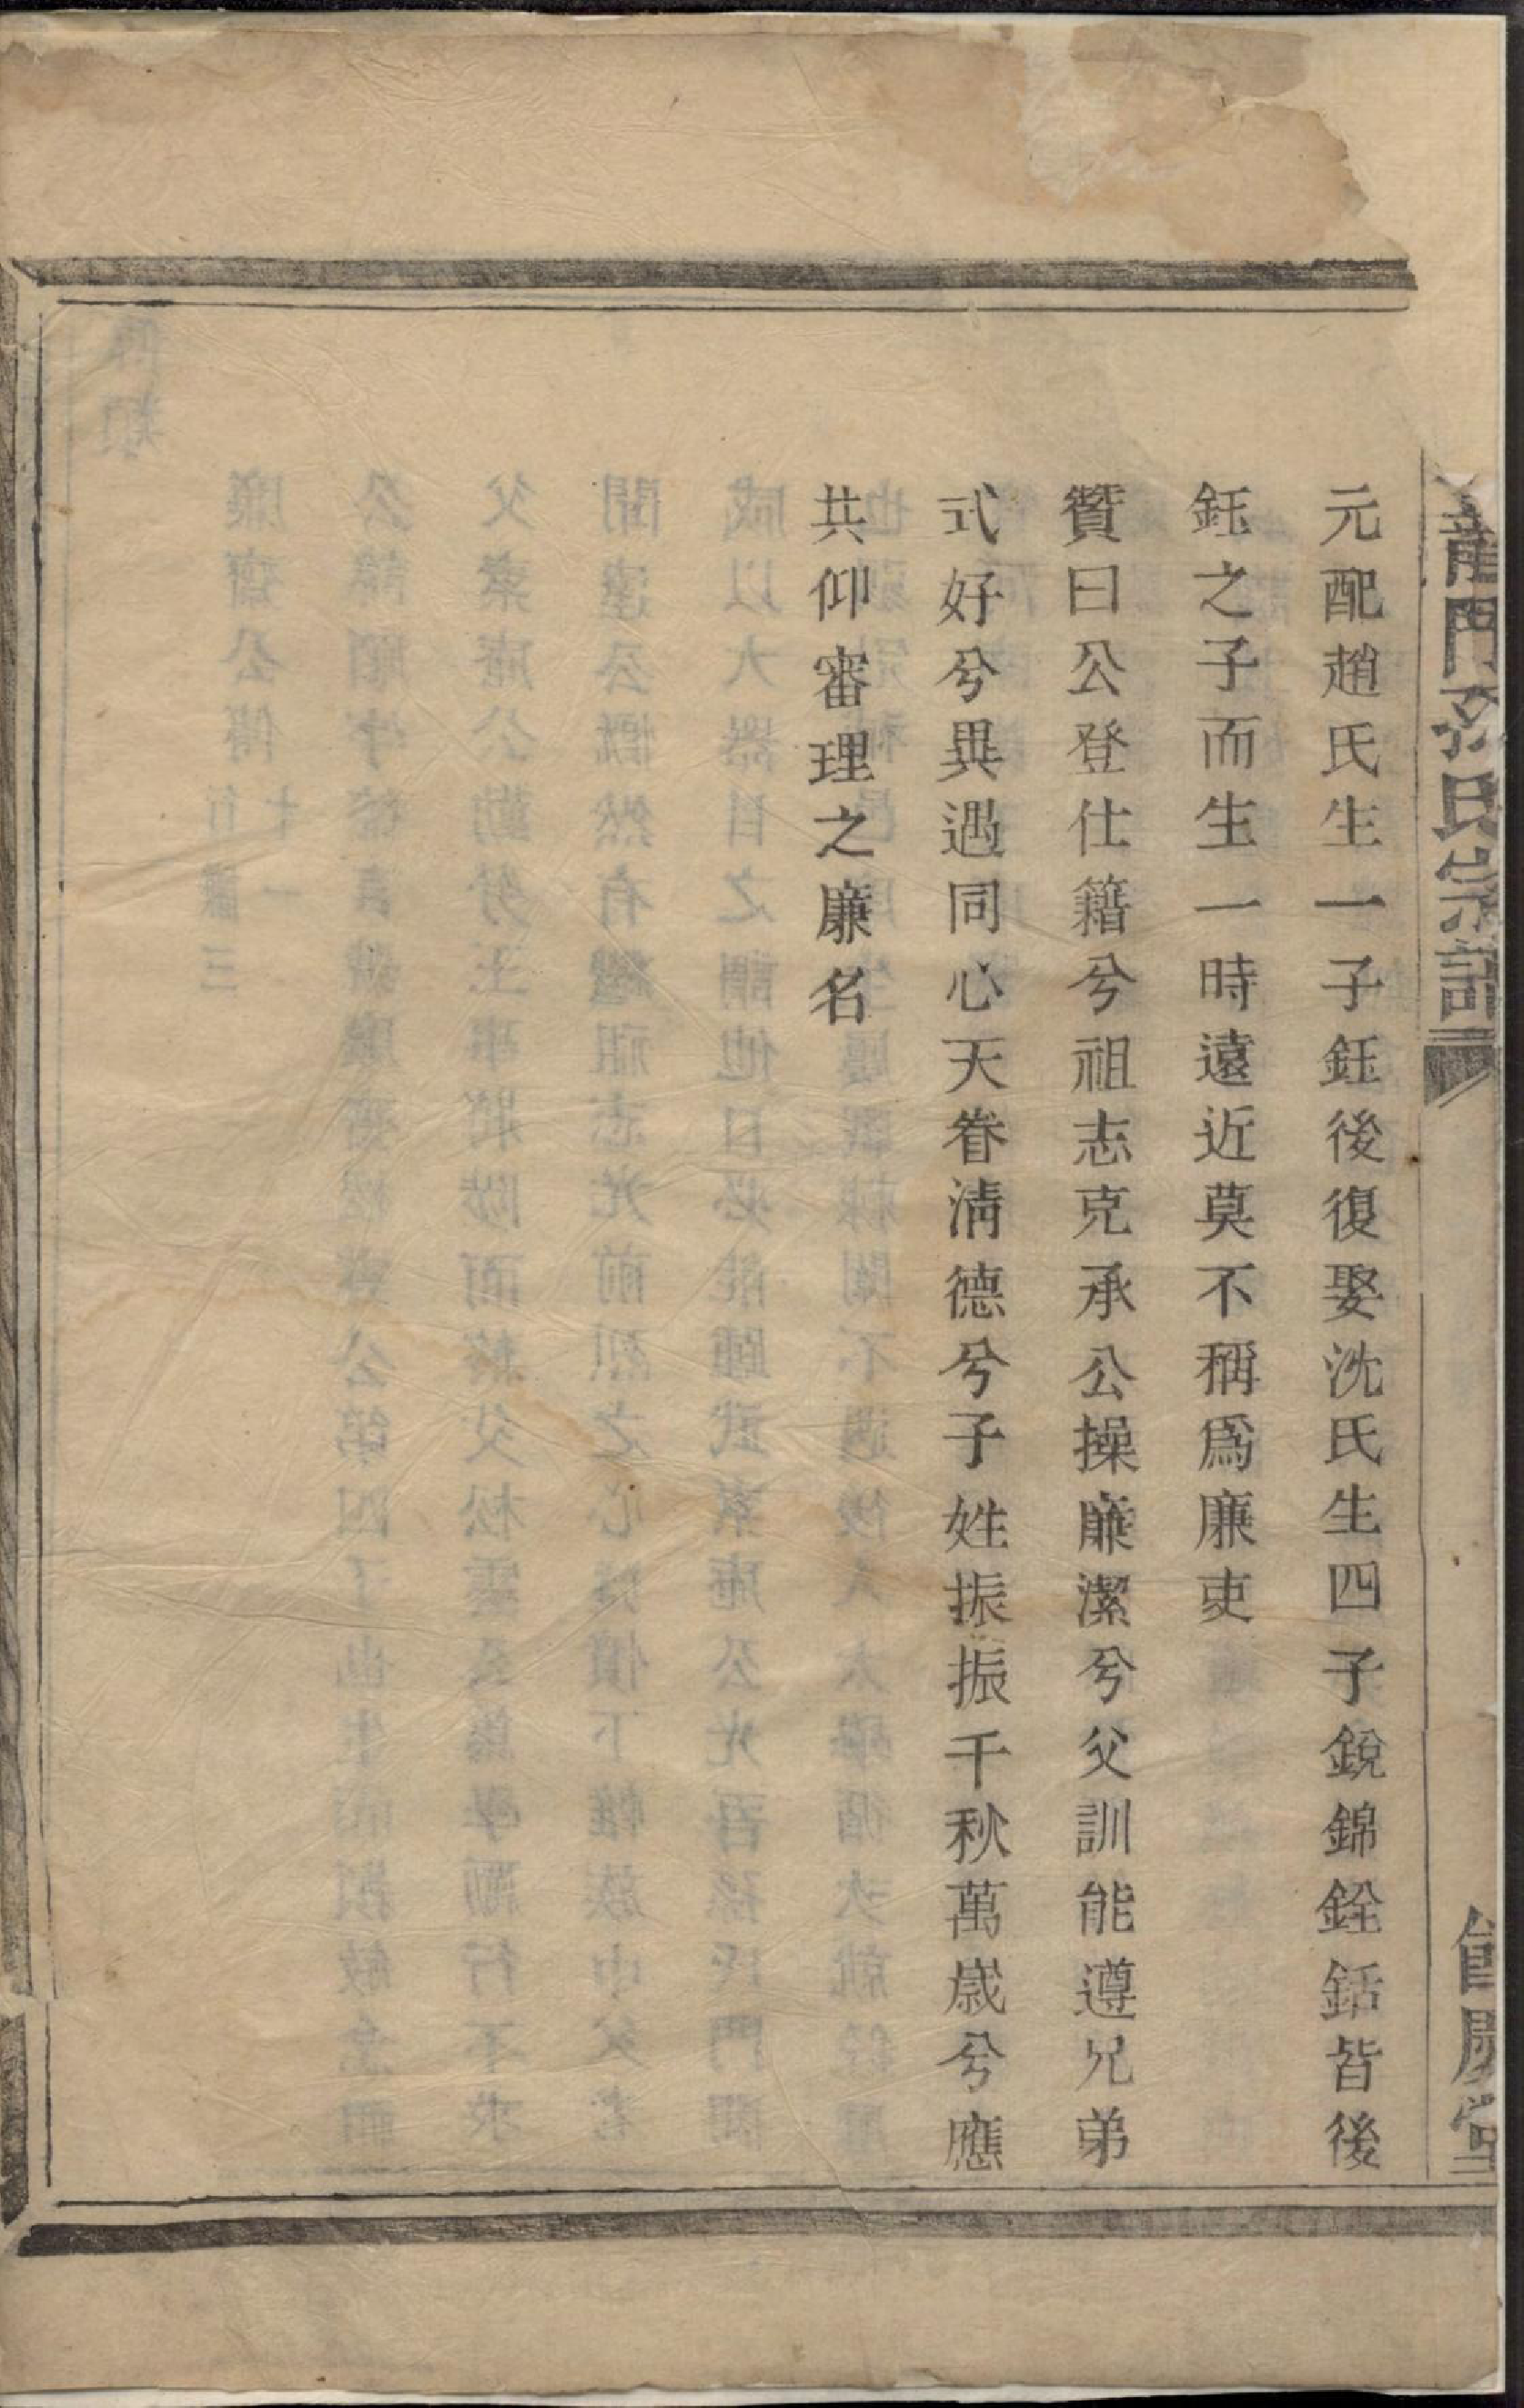 龍門孫氏宗譜
元配趙氏生一子鈺後復娶沈氏生四子銳錦銓銛皆後
鈺之子而生一時遠近莫不稱爲廉吏
贊曰公登仕籍兮祖志克承公操廉潔兮父訓能遵兄弟
式好兮異遇同心天眷淸德兮子姓振振千秋萬歲兮應
共仰審理之廉名